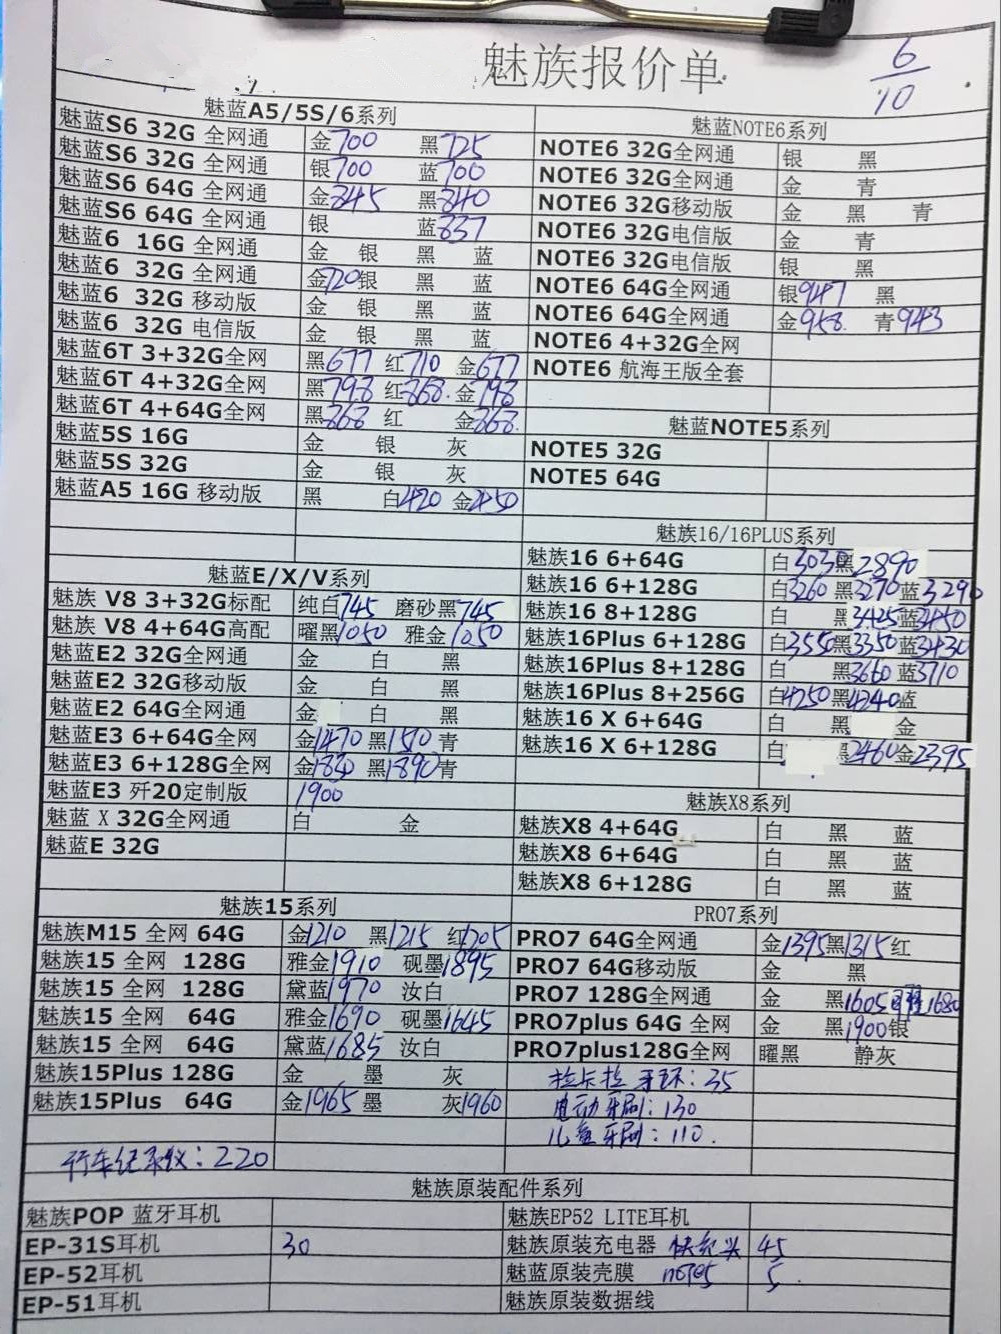 魅族报价单
6/10
魅蓝A5/5S/6系列
魅蓝S6 32G 全网通 金700 黑725
魅蓝S6 32G 全网通 银700 蓝700
魅蓝S6 64G 全网通 金845 黑840
魅蓝S6 64G 全网通 银 蓝837
魅蓝6 16G 全网通 金 银 黑 蓝
魅蓝6 32G 全网通 金720银 黑 蓝
魅蓝6 32G 移动版 金 银 黑 蓝
魅蓝6 32G 电信版 金 银 黑 蓝
魅蓝6T 3+32G全网 黑677 红710 金677
魅蓝6T 4+32G全网 黑798 红868. 金798
魅蓝6T 4+64G全网 黑868 红 金868.
魅蓝5S 16G 金 银 灰
魅蓝5S 32G 金 银 灰
魅蓝A5 16G 移动版 黑 白420 金450
魅蓝E/X/V系列
魅族 V8 3+32G标配 纯白745 磨砂黑745
魅族 V8 4+64G高配 曜黑1050 雅金1050
魅蓝E2 32G全网通 金 白 黑
魅蓝E2 32G移动版 金 白 黑
魅蓝E2 64G全网通 金 白 黑
魅蓝E3 6+64G全网 金1470 黑1510 青
魅蓝E3 6+128G全网 金1830 黑1890青
魅蓝E3 歼20定制版 1900
魅蓝 X 32G全网通 白 金
魅蓝E 32G
魅族15系列
魅族M15 全网 64G 金1210 黑1215 红1205
魅族15 全网 128G 雅金1910 砚墨1895
魅族15 全网 128G 黛蓝1970 汝白
魅族15 全网 64G 雅金1690 砚墨1645
魅族15 全网 64G 黛蓝1685 汝白
魅族15Plus 128G 金 墨 灰
魅族15Plus 64G 金1965 墨 灰1960
行车纪录仪：220
魅蓝NOTE6系列
NOTE6 32G全网通 银 黑
NOTE6 32G全网通 金 青
NOTE6 32G移动版 金 黑 青
NOTE6 32G电信版 金 青
NOTE6 32G电信版 银 黑
NOTE6 64G全网通 银947 黑
NOTE6 64G全网通 金958. 青943
NOTE6 4+32G全网
NOTE6 航海王版全套
魅蓝NOTE5系列
NOTE5 32G
NOTE5 64G
魅族16/16PLUS系列
魅族16 6+64G 白3030黑2890
魅族16 6+128G 白3260 黑3270蓝3290
魅族16 8+128G 白 黑3425蓝3450
魅族16Plus 6+128G 白3550黑3350蓝3430
魅族16Plus 8+128G 白 黑3660蓝3710
魅族16Plus 8+256G 白4250黑4240蓝
魅族16 X 6+64G 白 黑 金
魅族16 X 6+128G 白 黑2460金2395
魅族X8系列
魅族X8 4+64G 白 黑 蓝
魅族X8 6+64G 白 黑 蓝
魅族X8 6+128G 白 黑 蓝
PRO7系列
PRO7 64G全网通 金1395黑1315红
PRO7 64G移动版 金 黑
PRO7 128G全网通 金 黑1605 1680
PRO7plus 64G 全网 金 黑1900银
PRO7plus128G全网 曜黑 静灰
拉卡拉 手环：35
电动牙刷：130
儿童牙刷：110.
魅族原装配件系列
魅族POP 蓝牙耳机 魅族EP52 LITE耳机
EP-31S耳机 30 魅族原装充电器 快充头 45
EP-52耳机 魅蓝原装壳膜 note5 5.
EP-51耳机 魅族原装数据线